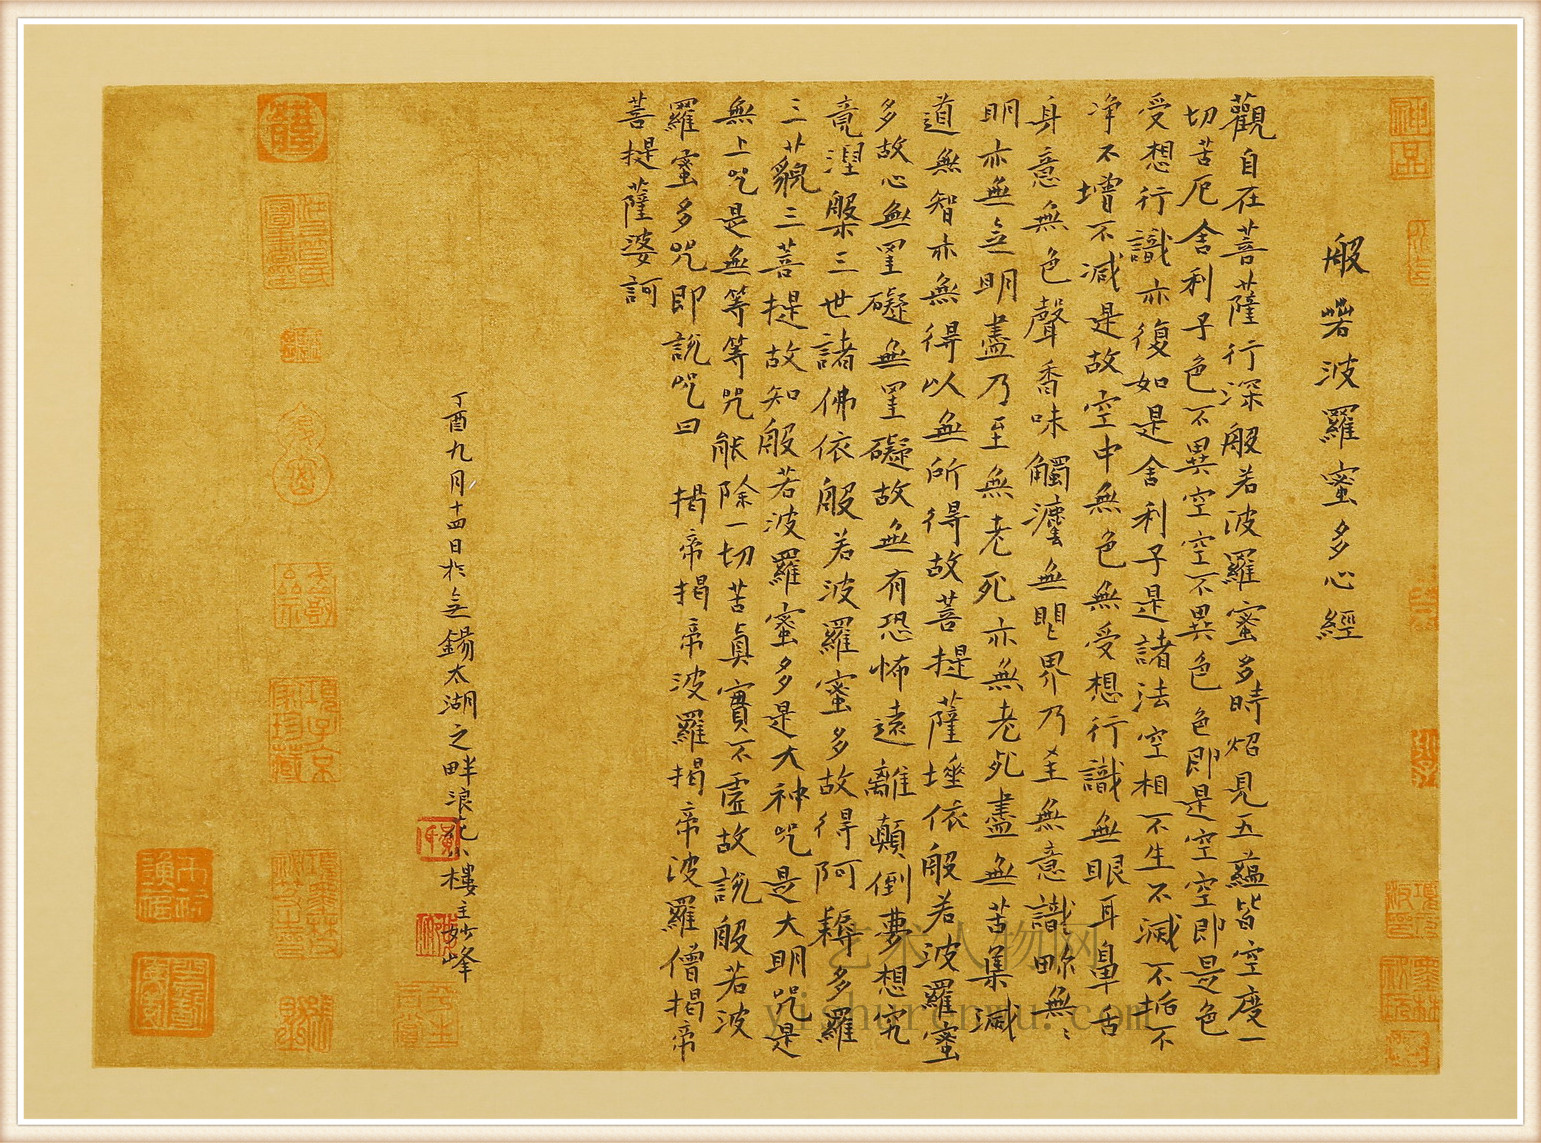 般若波羅蜜多心經
觀自在菩薩行深般若波羅蜜多時炤見五蘊皆空度一
切苦厄舍利子色不異空空不異色色即是空空即是色
受想行識亦復如是舍利子是諸法空相不生不滅不垢不
净不增不減是故空中無色無受想行識無眼耳鼻舌
身意無色聲香味觸塵無眼界乃至無意識界無
明亦無無明盡乃至無老死亦無老死盡無苦集滅
道無智亦無得以無所得故菩提薩埵依般若波羅蜜
多故心無罣礙無罣礙故無有恐怖遠離顛倒夢想究
竟涅槃三世諸佛依般若波羅蜜多故得阿耨多羅
三藐三菩提故知般若波羅蜜多是大神咒是大明咒是
無上咒是無等等咒能除一切苦真實不虛故說般若波
羅蜜多咒即說咒曰 揭帝揭帝波羅揭帝波羅僧揭帝
菩提薩婆訶
丁酉九月十四日於无錫太湖之畔浪花小樓主妙峰
神品
項子京家珍藏
艺术人物网
yishurenwu.com